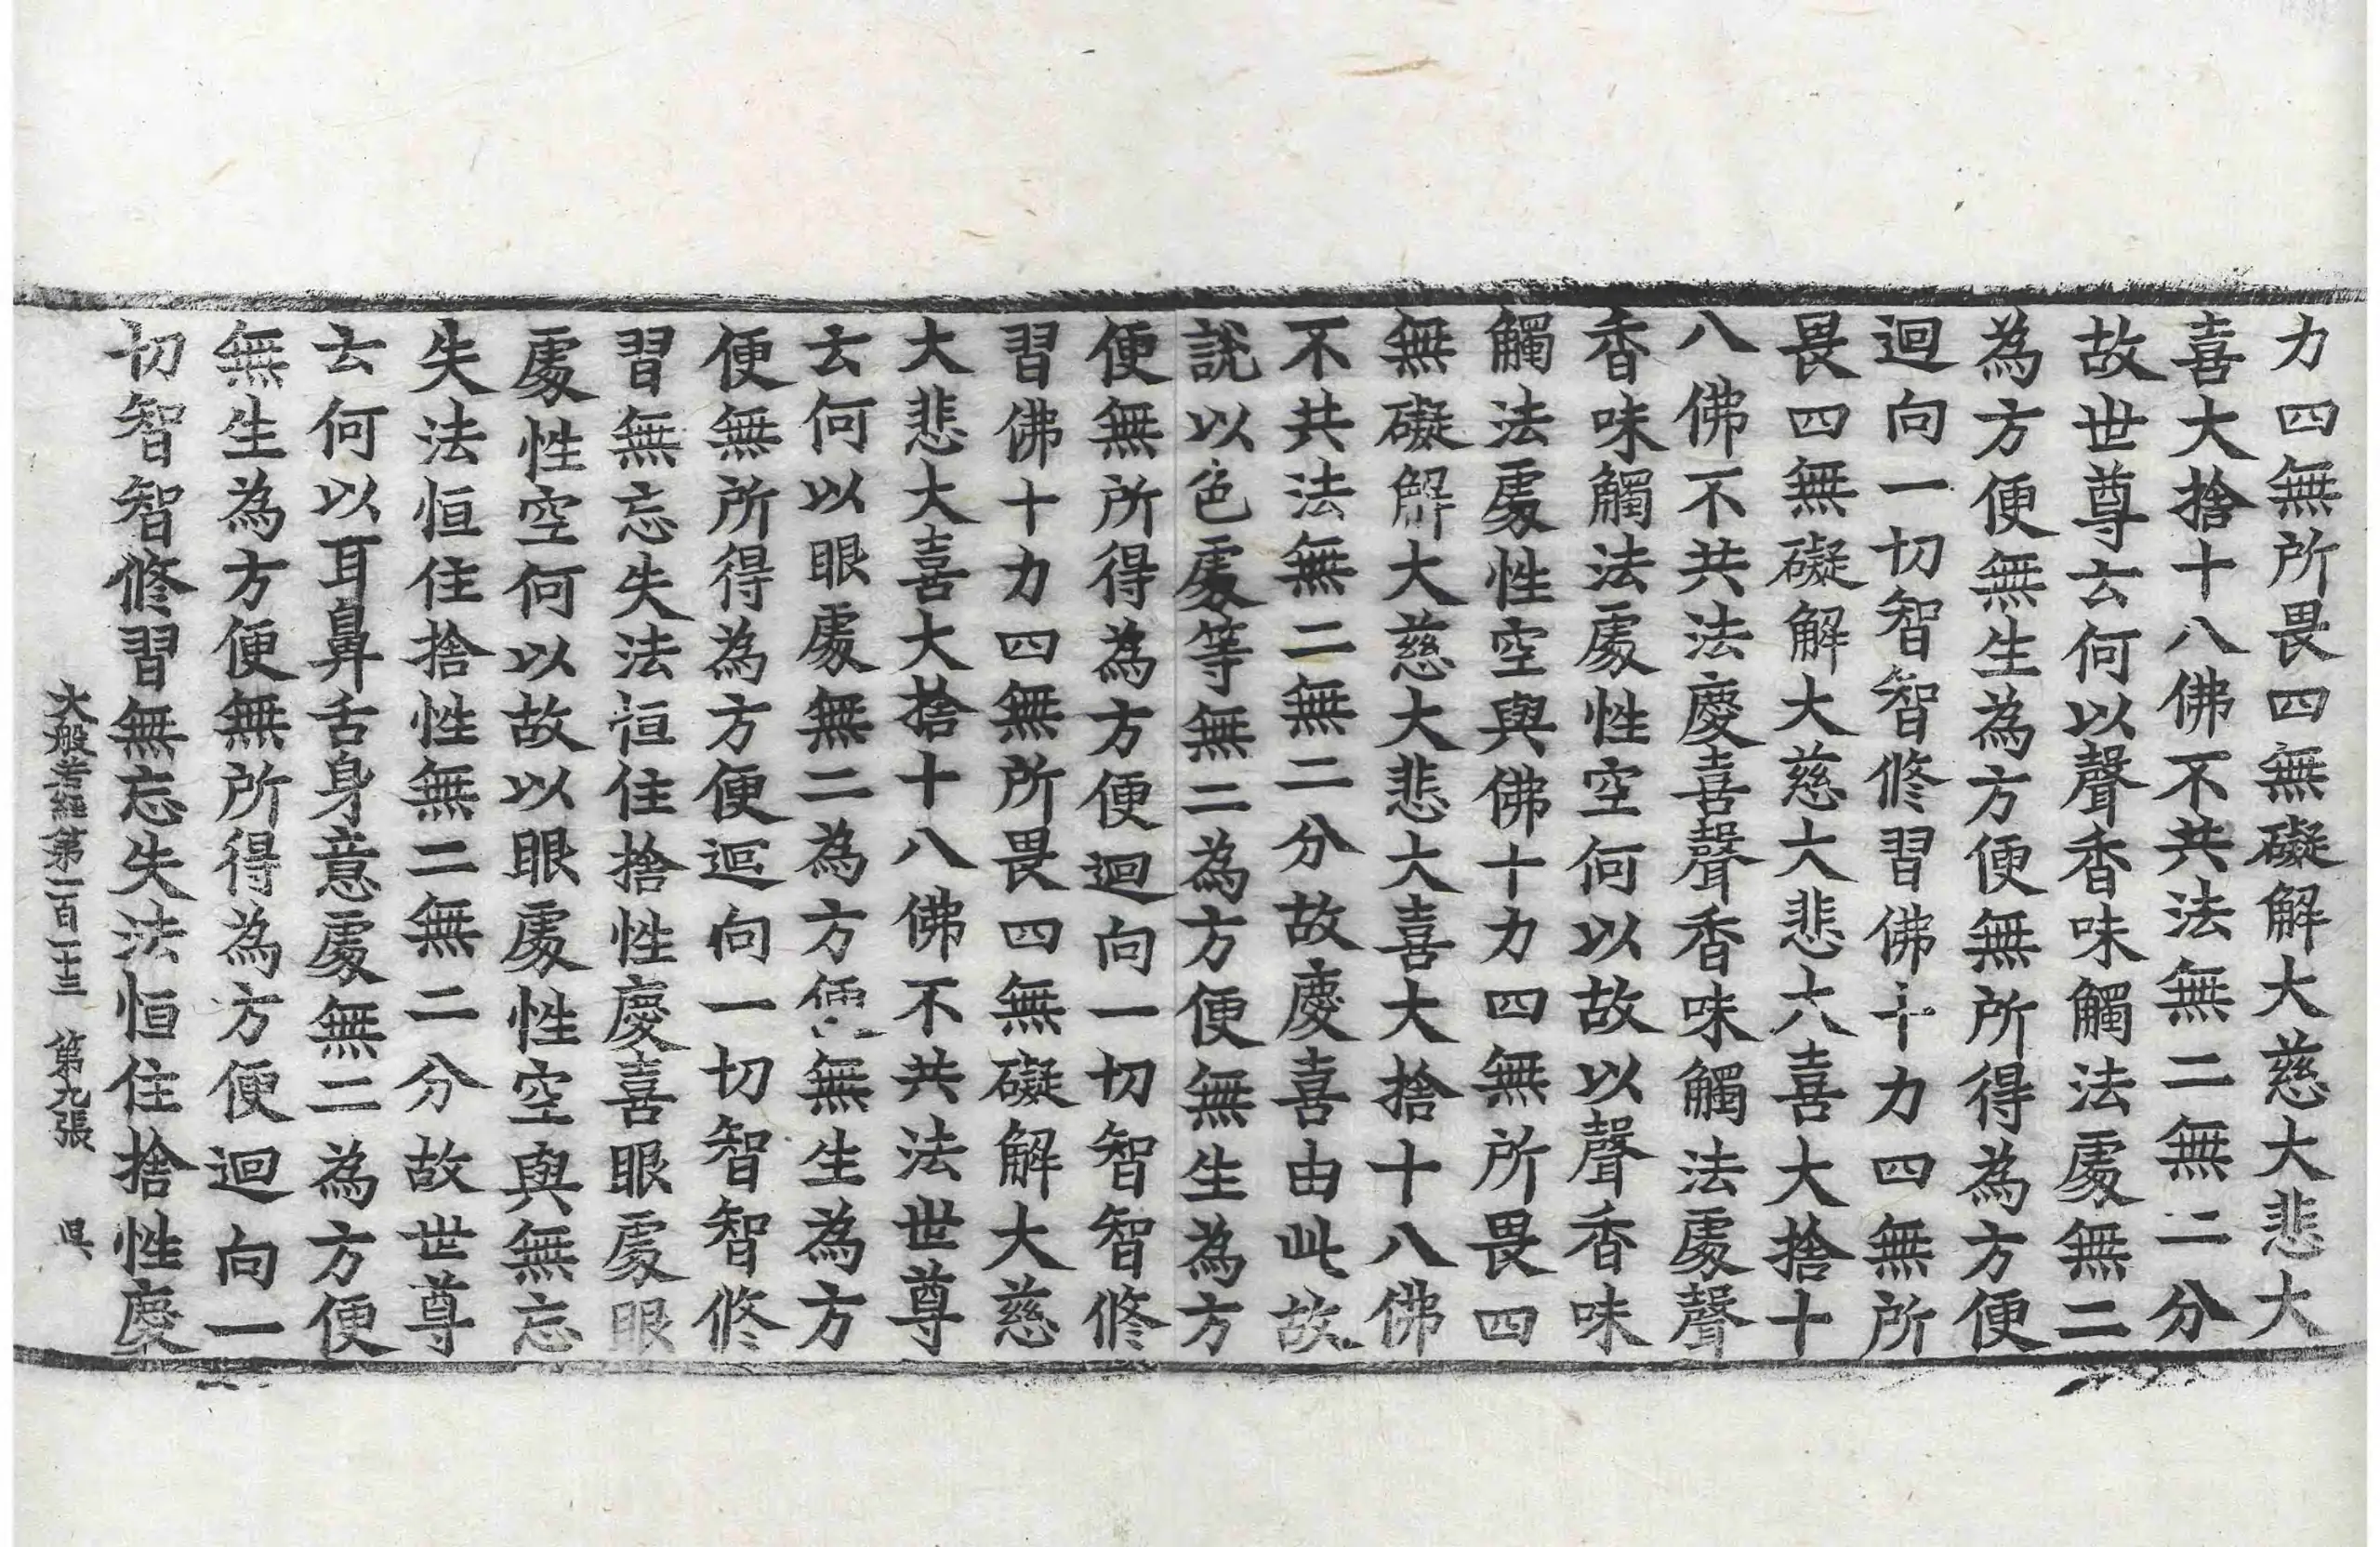 力四無所畏四無礙解大慈大悲大
喜大捨十八佛不共法無二無二分
故世尊云何以聲香味觸法處無二
為方便無生為方便無所得為方便
迴向一切智智修習佛十力四無所
畏四無礙解大慈大悲大喜大捨十
八佛不共法慶喜聲香味觸法處聲
香味觸法處性空何以故以聲香味
觸法處性空與佛十力四無所畏四
無礙解大慈大悲大喜大捨十八佛
不共法無二無二分故慶喜由此故
說以色處等無二為方便無生為方
便無所得為方便迴向一切智智修
習佛十力四無所畏四無礙解大慈
大悲大喜大捨十八佛不共法世尊
云何以眼處無二為方便無生為方
便無所得為方便迴向一切智智修
習無忘失法恒住捨性慶喜眼處眼
處性空何以故以眼處性空與無忘
失法恒住捨性無二無二分故世尊
云何以耳鼻舌身意處無二為方便
無生為方便無所得為方便迴向一
切智智修習無忘失法恒住捨性慶
大般若經第一百二十三 第九張 昃